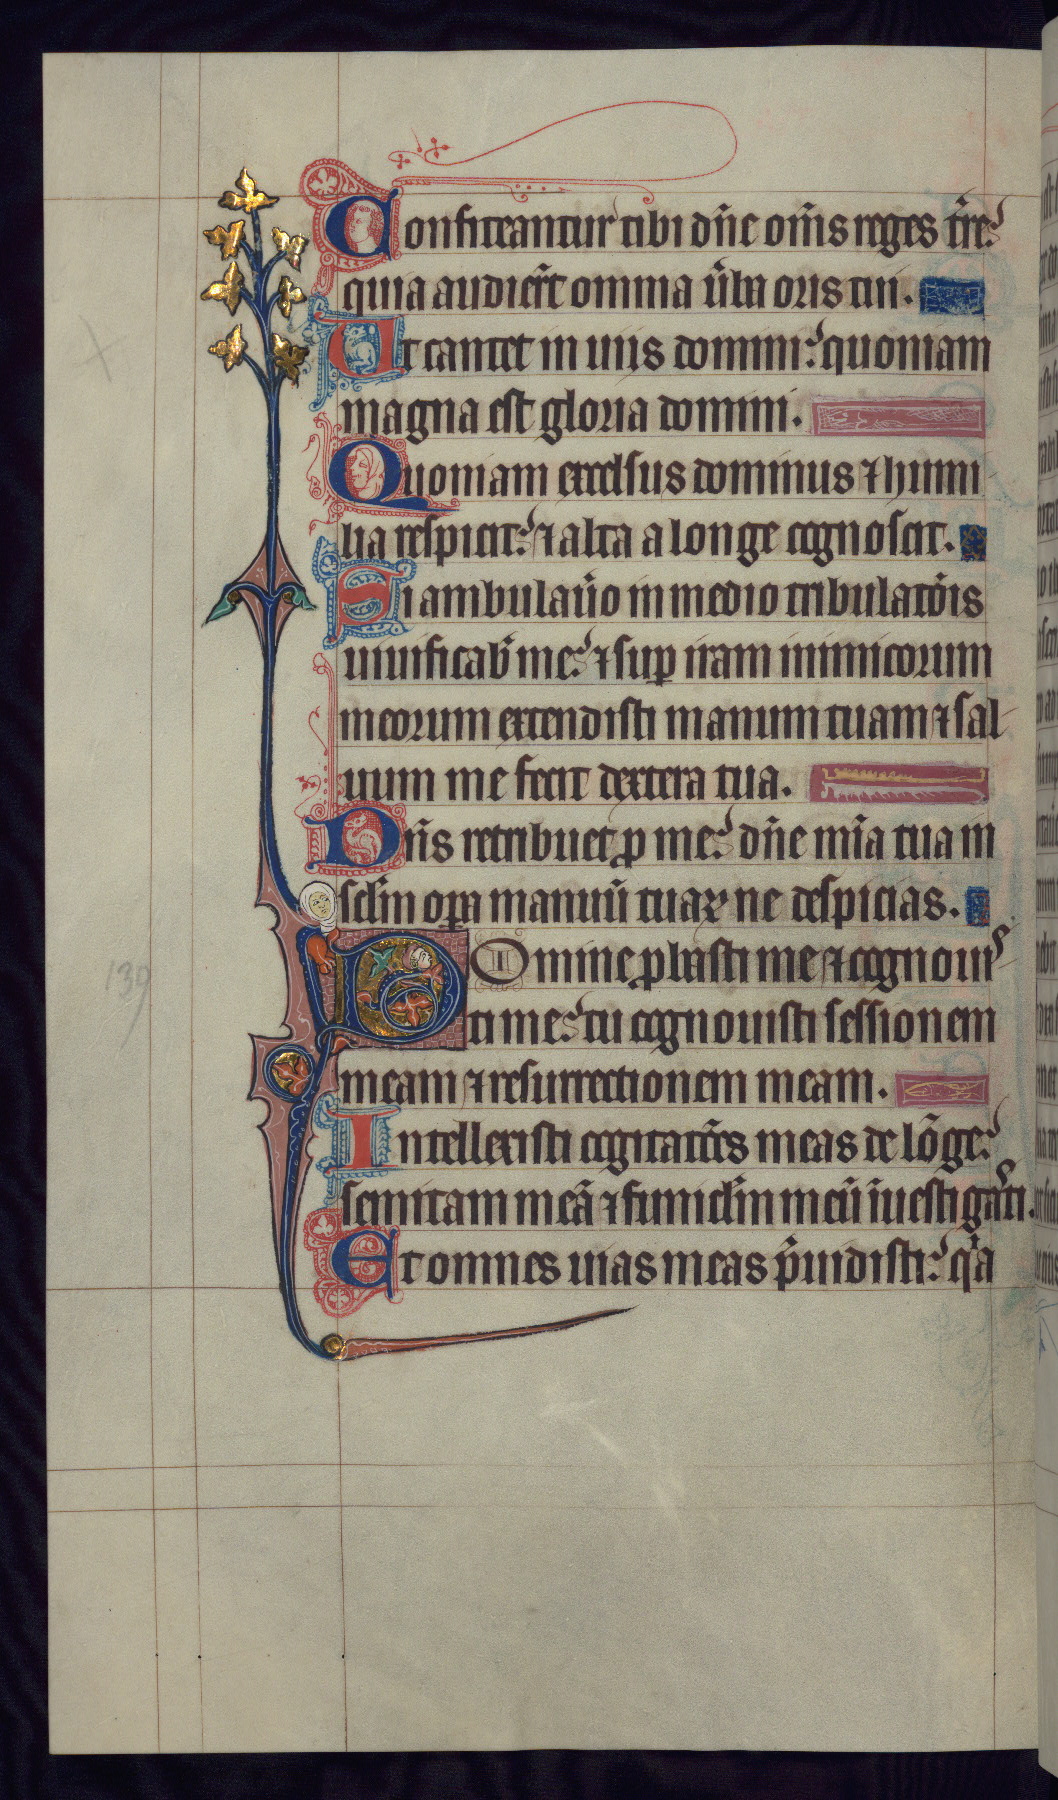 Confiteantur tibi dñe om̃s reges tr̃re:
quia audier̃t omnia ũba oris tui.
Et cantet in uiis domini: quoniam
magna est gloria domini.
Quoniam excelsus dominus ⁊ humi
lia respicit: ⁊ alta a longe cognoscit.
Si ambulaũo in medio tribulatõis
uiuificab̃ me: ⁊ suꝑ iram inimicorum
meorum extendisti manum tuam ⁊ sal-
uum me fecit dextera tua.
Dñs retribuet ꝓ me: dñe mĩa tua in
sclm̃ oꝑa manuũ tuaꝝ ne despicias.
Domine ꝓbasti me ⁊ cognouis-
ti me: tu cognouisti sessionem
meam ⁊ resurrectionem meam.
Intellexisti cogitatões meas de lõge:
semitam meã ⁊ funiclm̃ meũ ĩuestigasti.
Et omnes uias meas p̃uidisti: qͥa
139